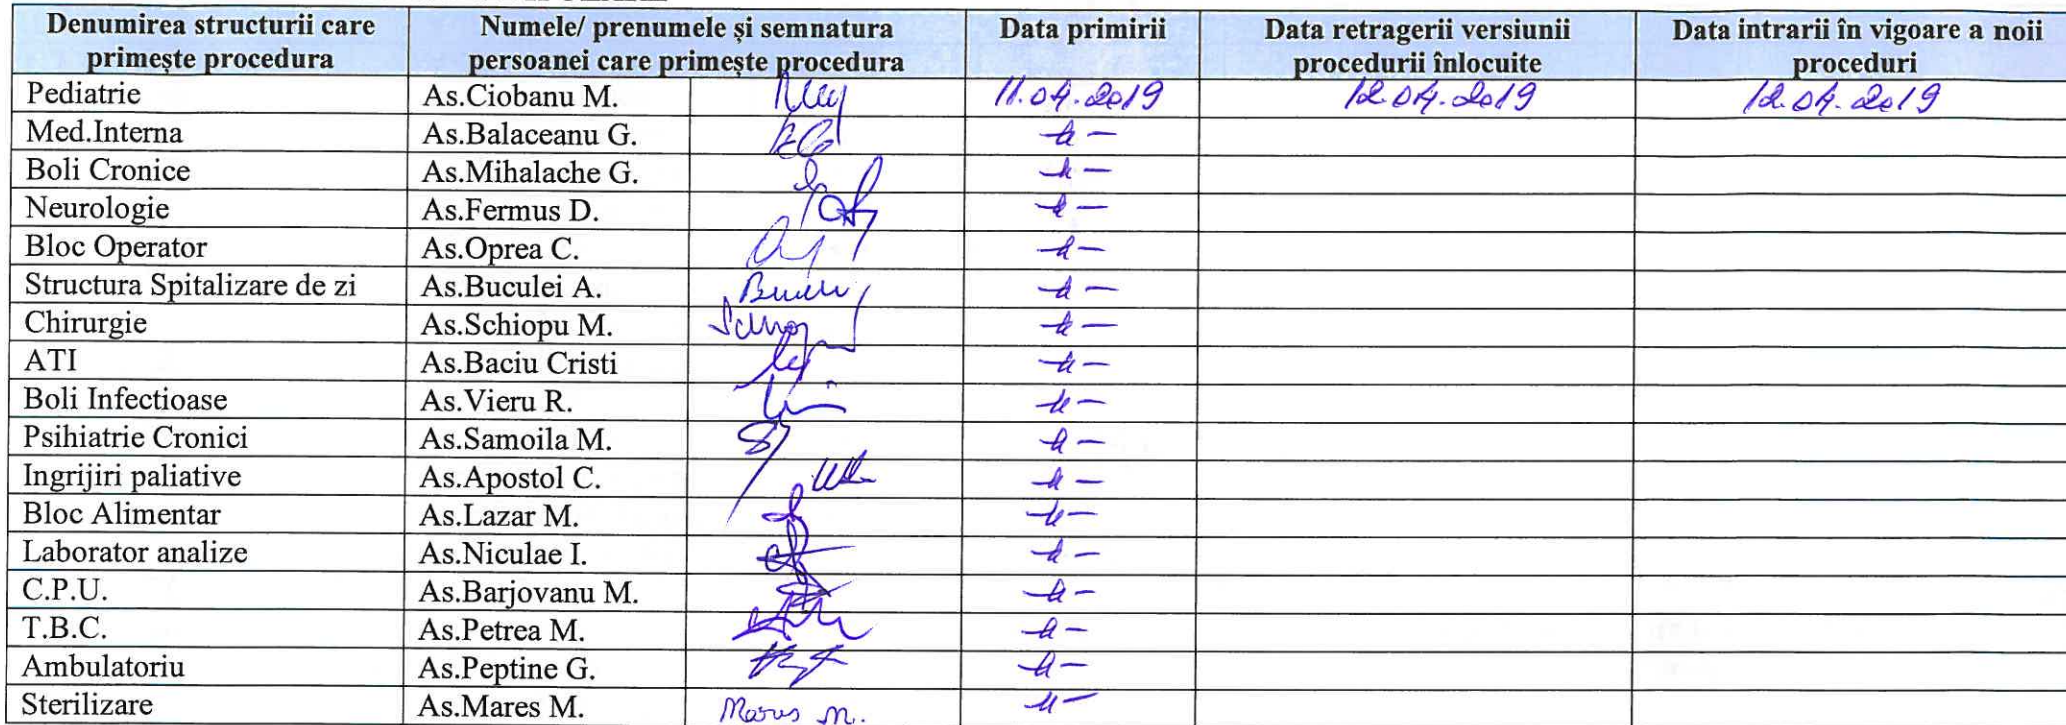 Denumirea structurii care primește procedura
Numele/ prenumele și semnatura persoanei care primește procedura
Data primirii
Data retragerii versiunii procedurii înlocuite
Data intrarii în vigoare a noii proceduri
Pediatrie As.Ciobanu M. 11.04.2019 12.04.2019 12.04.2019
Med.Interna As.Balaceanu G.
Boli Cronice As.Mihalache G.
Neurologie As.Fermus D.
Bloc Operator As.Oprea C.
Structura Spitalizare de zi As.Buculei A.
Chirurgie As.Schiopu M.
ATI As.Baciu Cristi
Boli Infectioase As.Vieru R.
Psihiatrie Cronici As.Samoila M.
Ingrijiri paliative As.Apostol C.
Bloc Alimentar As.Lazar M.
Laborator analize As.Niculae I.
C.P.U. As.Barjovanu M.
T.B.C. As.Petrea M.
Ambulatoriu As.Peptine G.
Sterilizare As.Mares M.